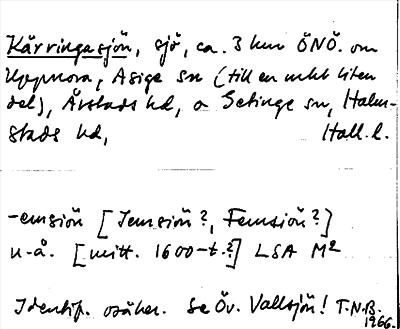 Kärringasjön, sjö, ca. 3 km ÖNÖ. om
Uppnora, Asige sn (till en mkt liten
del), Årstads hd, o Getinge sn, Halm-
stads hd, Hall. l.
-emsiön [Jemsiön?, Femsiön?]
u-å. [mitt. 1600-t.?] LSA M²
Identif. osäker. Se Öv. Vallsjön! T.N.B.
1966.